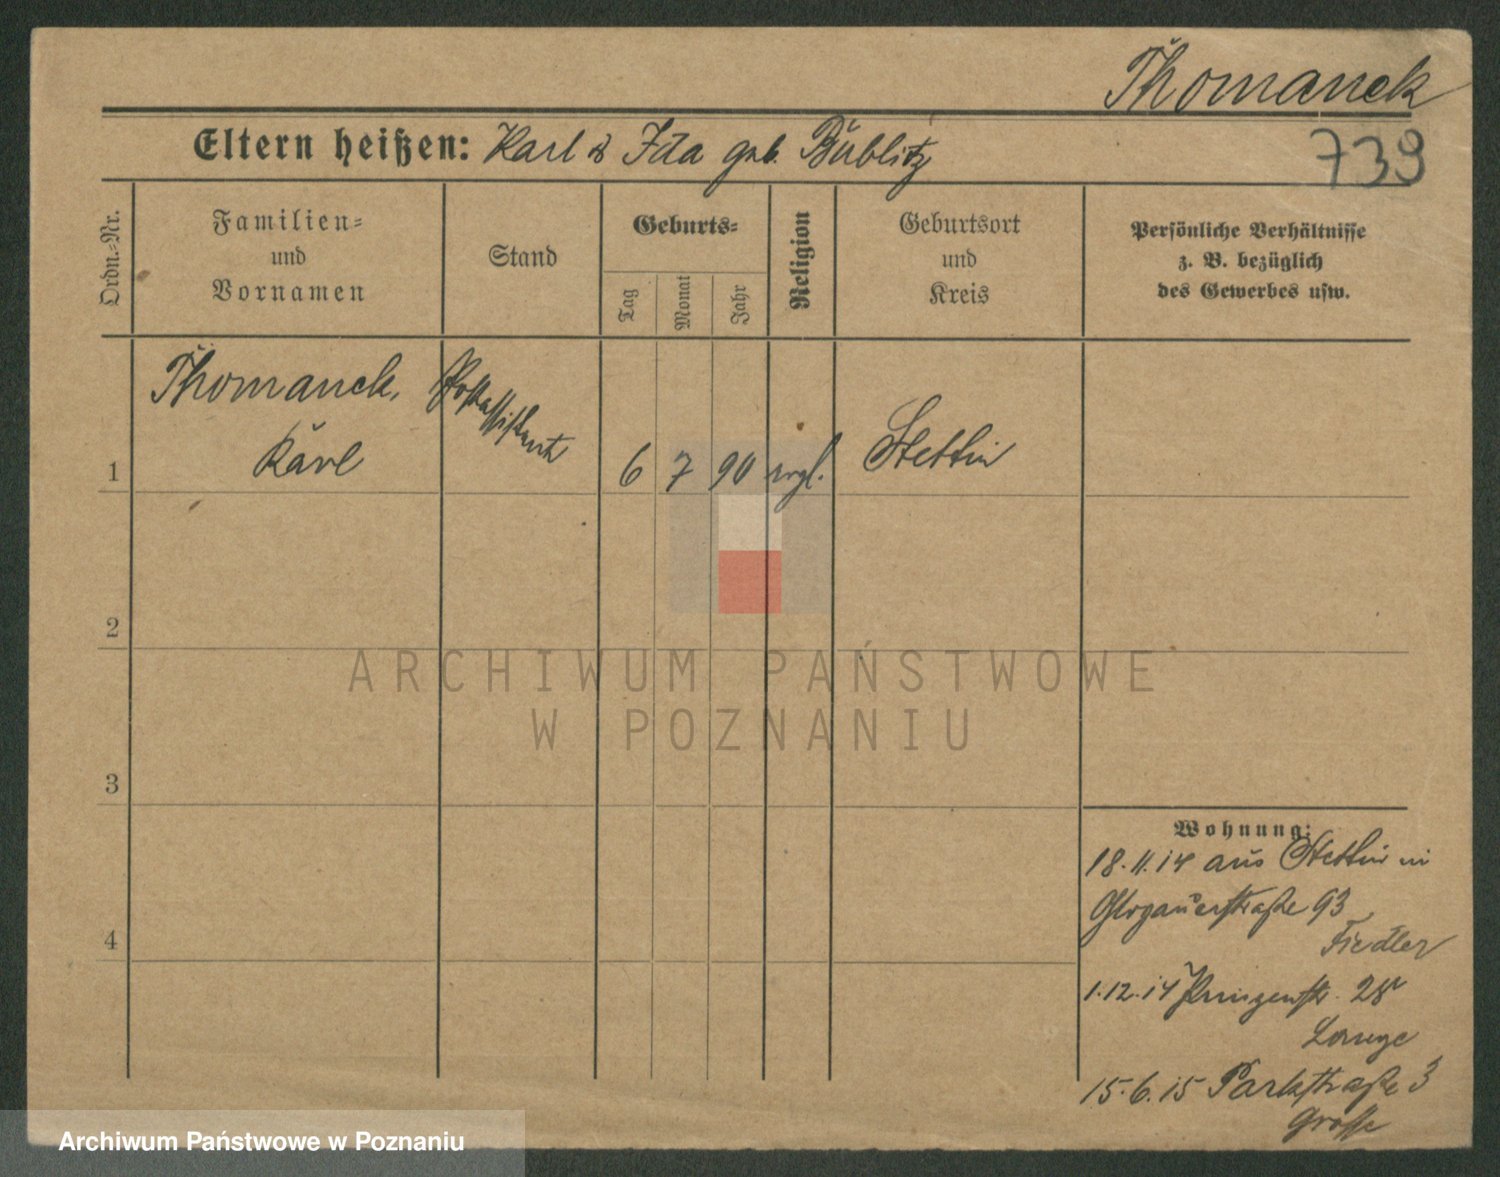 Thomanek
Eltern heißen: Karl & Ida geb. Bublitz
739
Ordn.-Nr.
Familien-
und
Vornamen
Stand
Geburts-
Tag
Monat
Jahr
Religion
Geburtsort
und
Kreis
Persönliche Verhältnisse
z. B. bezüglich
des Gewerbes usw.
Thomanek,
Karl
Postassistent
1
6 7 90 evgl.
Stettin
2
3
4
ARCHIWUM PAŃSTWOWE
W POZNANIU
Wohnung:
18.11.14 aus Stettin in
Glogauerstraße 93
Fiedler
1.12.14 Prinzenstr. 28
Lange
15.6.15 Parkstraße 3
Große
Archiwum Państwowe w Poznaniu